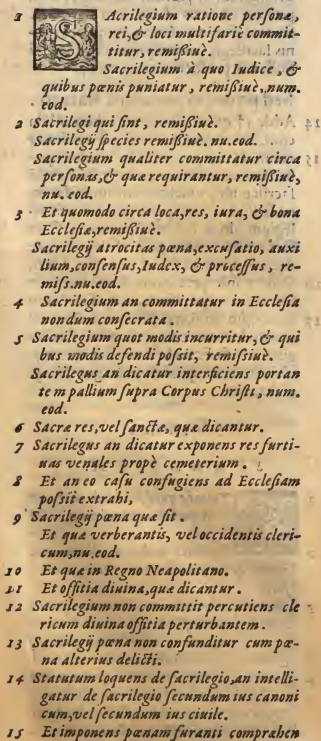 1 SAcrilegium ratione personæ,
rei, & loci multifariè commit-
titur, remißiuè.
Sacrilegium à quo Iudice, &
quibus pœnis puniatur, remißiuè, num.
eod.
2 Sacrilegi qui sint, remißiuè.
Sacrilegij species remißiuè. nu. eod.
Sacrilegium qualiter committatur circa
personas, & quæ requirantur, remißiuè,
nu. eod.
3 Et quomodo circa loca, res, iura, & bona
Ecclesiæ, remißiuè.
Sacrilegij atrocitas pœna, excusatio, auxi
lium, consensus, Iudex, & processus, re-
miss. nu. eod.
4 Sacrilegium an committatur in Ecclesia
nondum consecrata.
5 Sacrilegium quot modis incurritur, & qui
bus modis defendi possit, remißiuè.
Sacrilegus an dicatur interficiens portan
tem pallium supra Corpus Christi, num.
eod.
6 Sacræ res, vel sanctæ, quæ dicantur.
7 Sacrilegus an dicatur exponens res furti-
uas venales propè cemeterium.
8 Et an eo casu confugiens ad Ecclesiam
possit extrahi,
9 Sacrilegij pœna quæ sit.
Et quæ verberantis, vel occidentis cleri-
cum, nu. eod.
10 Et quæ in Regno Neapolitano.
11 Et offitia diuina, quæ dicantur.
12 Sacrilegium non committit percutiens cle
ricum diuina offitia perturbantem.
13 Sacrilegij pœna non confunditur cum pœ-
na alterius delicti.
14 Statutum loquens de sacrilegio, an intelli-
gatur de sacrilegio secundum ius canoni
cum, vel secundum ius ciuile.
15 Et imponens pœnam furanti compræhen